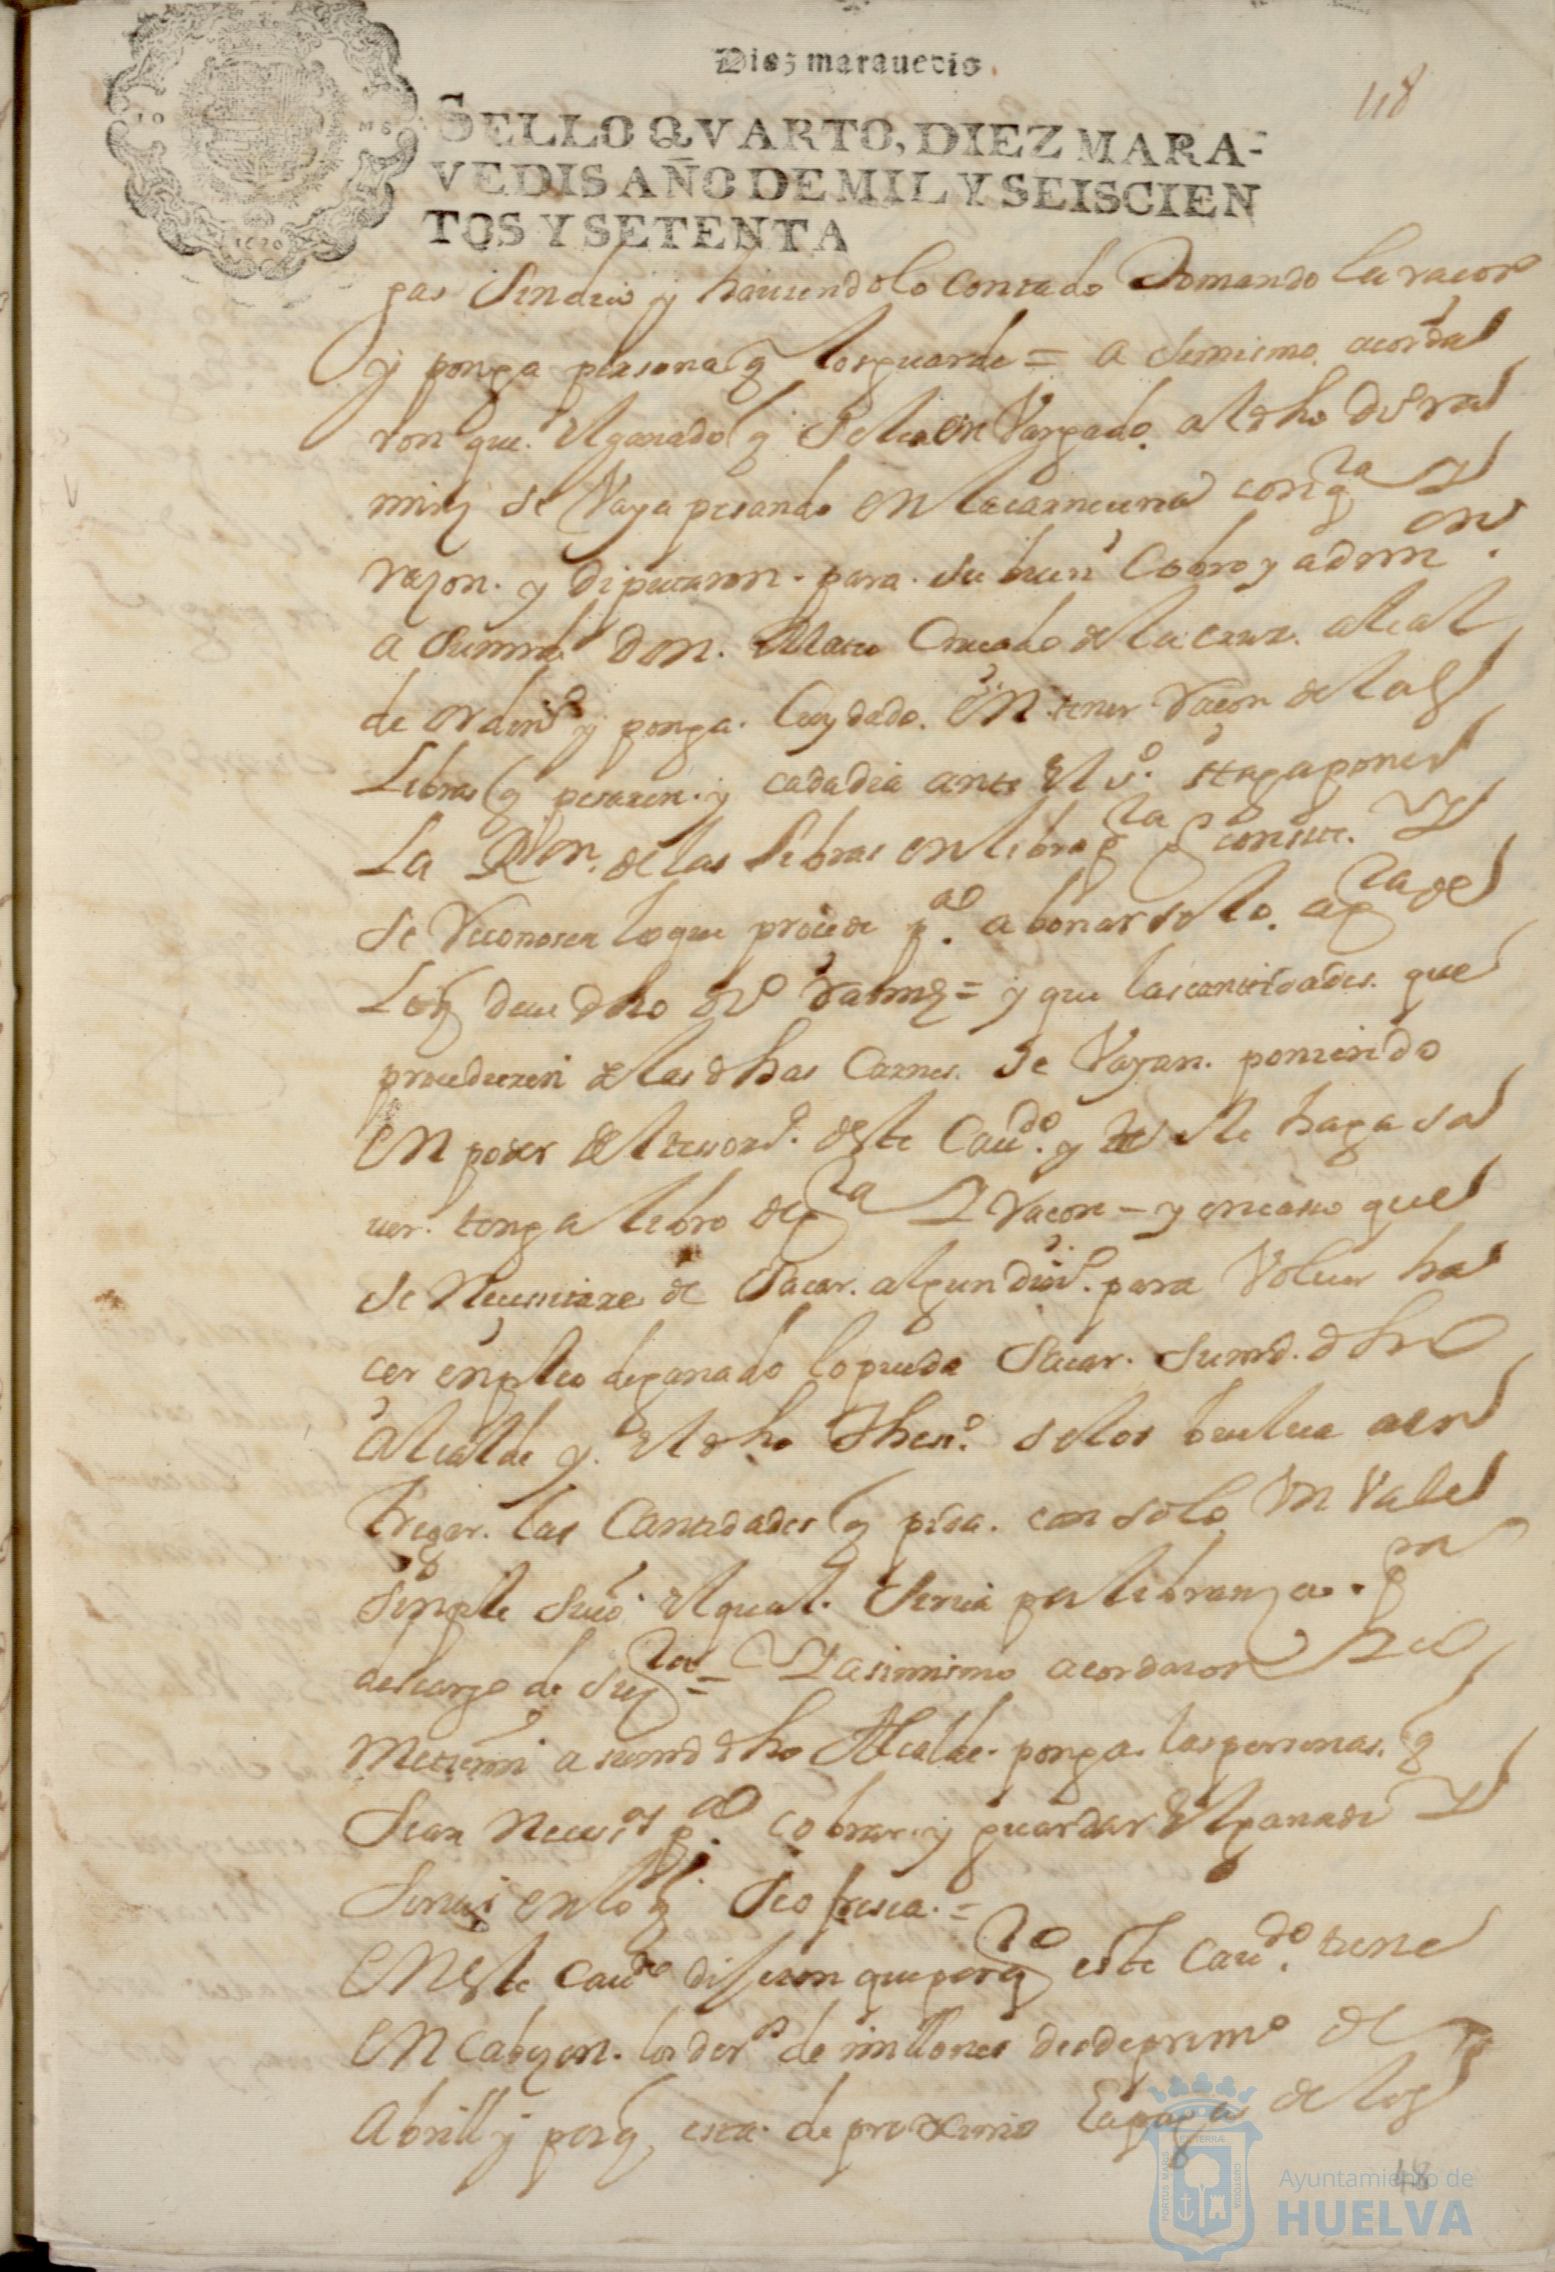 Diez marauedis.
118
SELLO QVARTO, DIEZ MARA-
VEDIS AÑO DE MIL Y SEISCIEN
TOS Y SETENTA
1670
gas Sindico y hauiendolo contado tomando la racon
y ponga persona q los guarde = a simismo acorda
ron que el ganado q se lea en Vargado al dho Dº
se Vaya pesando en la carneceria con qta y
razon. y diputaron. para. su buen Cobro y admon.
a sumrd Don. Mateo de la cruz. alcal
de ordinº y ponga. Cuydado. En tener Racon de las
Libras q pesaren. y cada dia ante el sº. haga poner
La Rlon. de las libras en libro pª q conste. Y
se Reconosca lo que procede pª. abonarselo. a qta de
Lo q deue dho = y que las cantidades. que
procedieren de las dhas Carnes. se Vayan. poniendo
En poder del tesorº. deste Caudº. y se le haga sa
uer. tenga libro de qta Y Racon – y en caso que
se Necesitare de Sacar. algun dinº. para Voluer ha
cer enpleo de ganado lo pueda Sacar. sumrd. dho
Alcalde y. el dho thesº. se los buelua a en
tregar. las Cantidades q pida. con solo Un Vale
Sinple suio. el qual. Seruia por libranza. pª
descargo de su qta = Y asimismo acordaron
metieron a sumrd dho Alcalde. ponga. las personas. q
Sean Necesas pª cobrar. y guardar El ganado Y
Seruir en lo q. Se ofresca. =
En Este Caudo dijeron que por qto este Caudo. tiene
En Cabezon. los derºs de millones desde primº de
Abrill y por q esta. de proximo La paga de los
48
PORTUS MARIS ET TERRÆ CUSTODIA
Ayuntamiento de
HUELVA